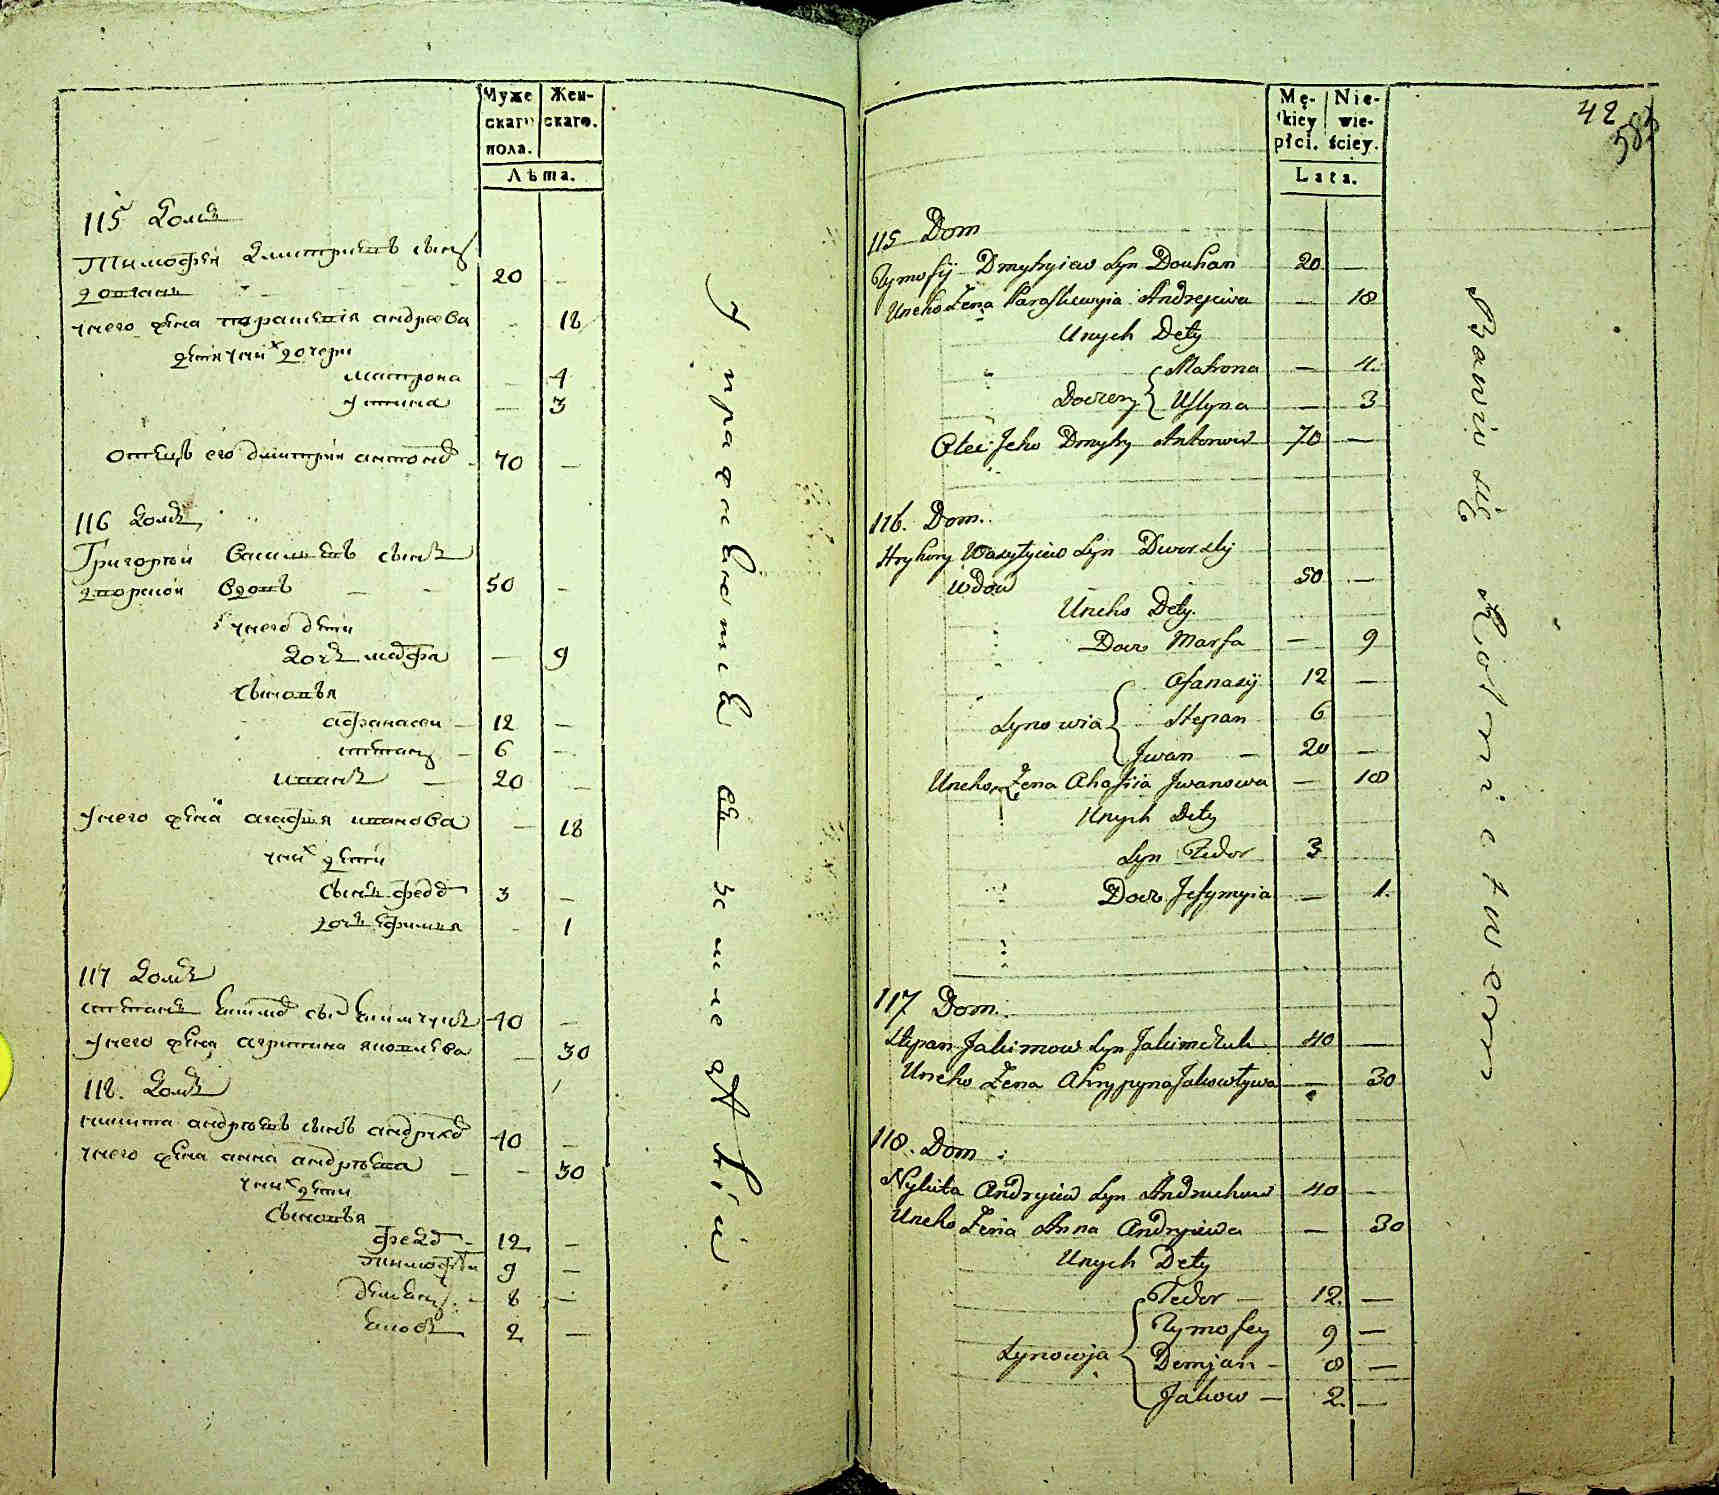 Муже
скаго
пола.
Жен-
скаго.
Лѣта.
115 Домъ
Тимофей Дмитриевъ сынъ
Довганъ 20 -
У него жена Парасковия Андреева - 18
У них дочери
Матрона - 4
Устина - 3
Отецъ его Дмитрий Антонов - 70 -
116 Домъ
Григорий Васильевъ сынъ
Дворской вдовъ - - 50 -
У него дети
Дочь Марфа - 9
Сыновья
Афанасей - 12 -
Степанъ - 6 -
Иванъ - 20 -
У него жена Агафия Иванова - 18
У них дети
Сынъ Федор 3 -
Дочь Ефимия - 1
117 Домъ
Степанъ Екимов сын Екимчукъ 40 -
У него жена Агрипина Яковлева - 30
118. Домъ
Никита Андреевъ сынъ 40 -
У него жена Анна Андреева - - 30
У них дети
Сыновья
Федор - 12 -
Тимофей 9 -
Демьянъ - 8 -
Яковъ 2 -
Упражняются въ
Mę-
skiéy
płci.
Nie-
wie-
ściey.
Lata.
42
583
115 Dom
Tymofij Dmytryiew Syn Douhan 20 —
Uneho Żena Paraskewyia Andrejewa — 18
Unych Dety
Doczery { Matrona — 4.
Ustyna — 3
Otec Jeho Dmytry Antonow 70 —
116. Dom.
Hryhory Wasylyiew Syn Dworsky
Wdow 50 —
Uneho Dety.
Docz Marfa — 9
Synowia { Afanasij 12 —
Stepan 6
Jwan — 20 —
Uneho Żena Ahafiia Jwanowa — 18
Unych Dety
Syn Fedor 3
Docz Jefymyia — 1.
117 Dom.
Stepan Jakimow Syn Jakimczuk 40 —
Uneho Żena Ahrypyna Jakowlywa — 30
118. Dom.
Nykita Andryiew Syn Andruchow 40 —
Uneho Żena Anna Andryiewa — 30
Unych Dety
Synowja { Fedor — 12. —
Tymofey 9 —
Demjan - 8 —
Jakow — 2. —
Bawio się Rolnictwem